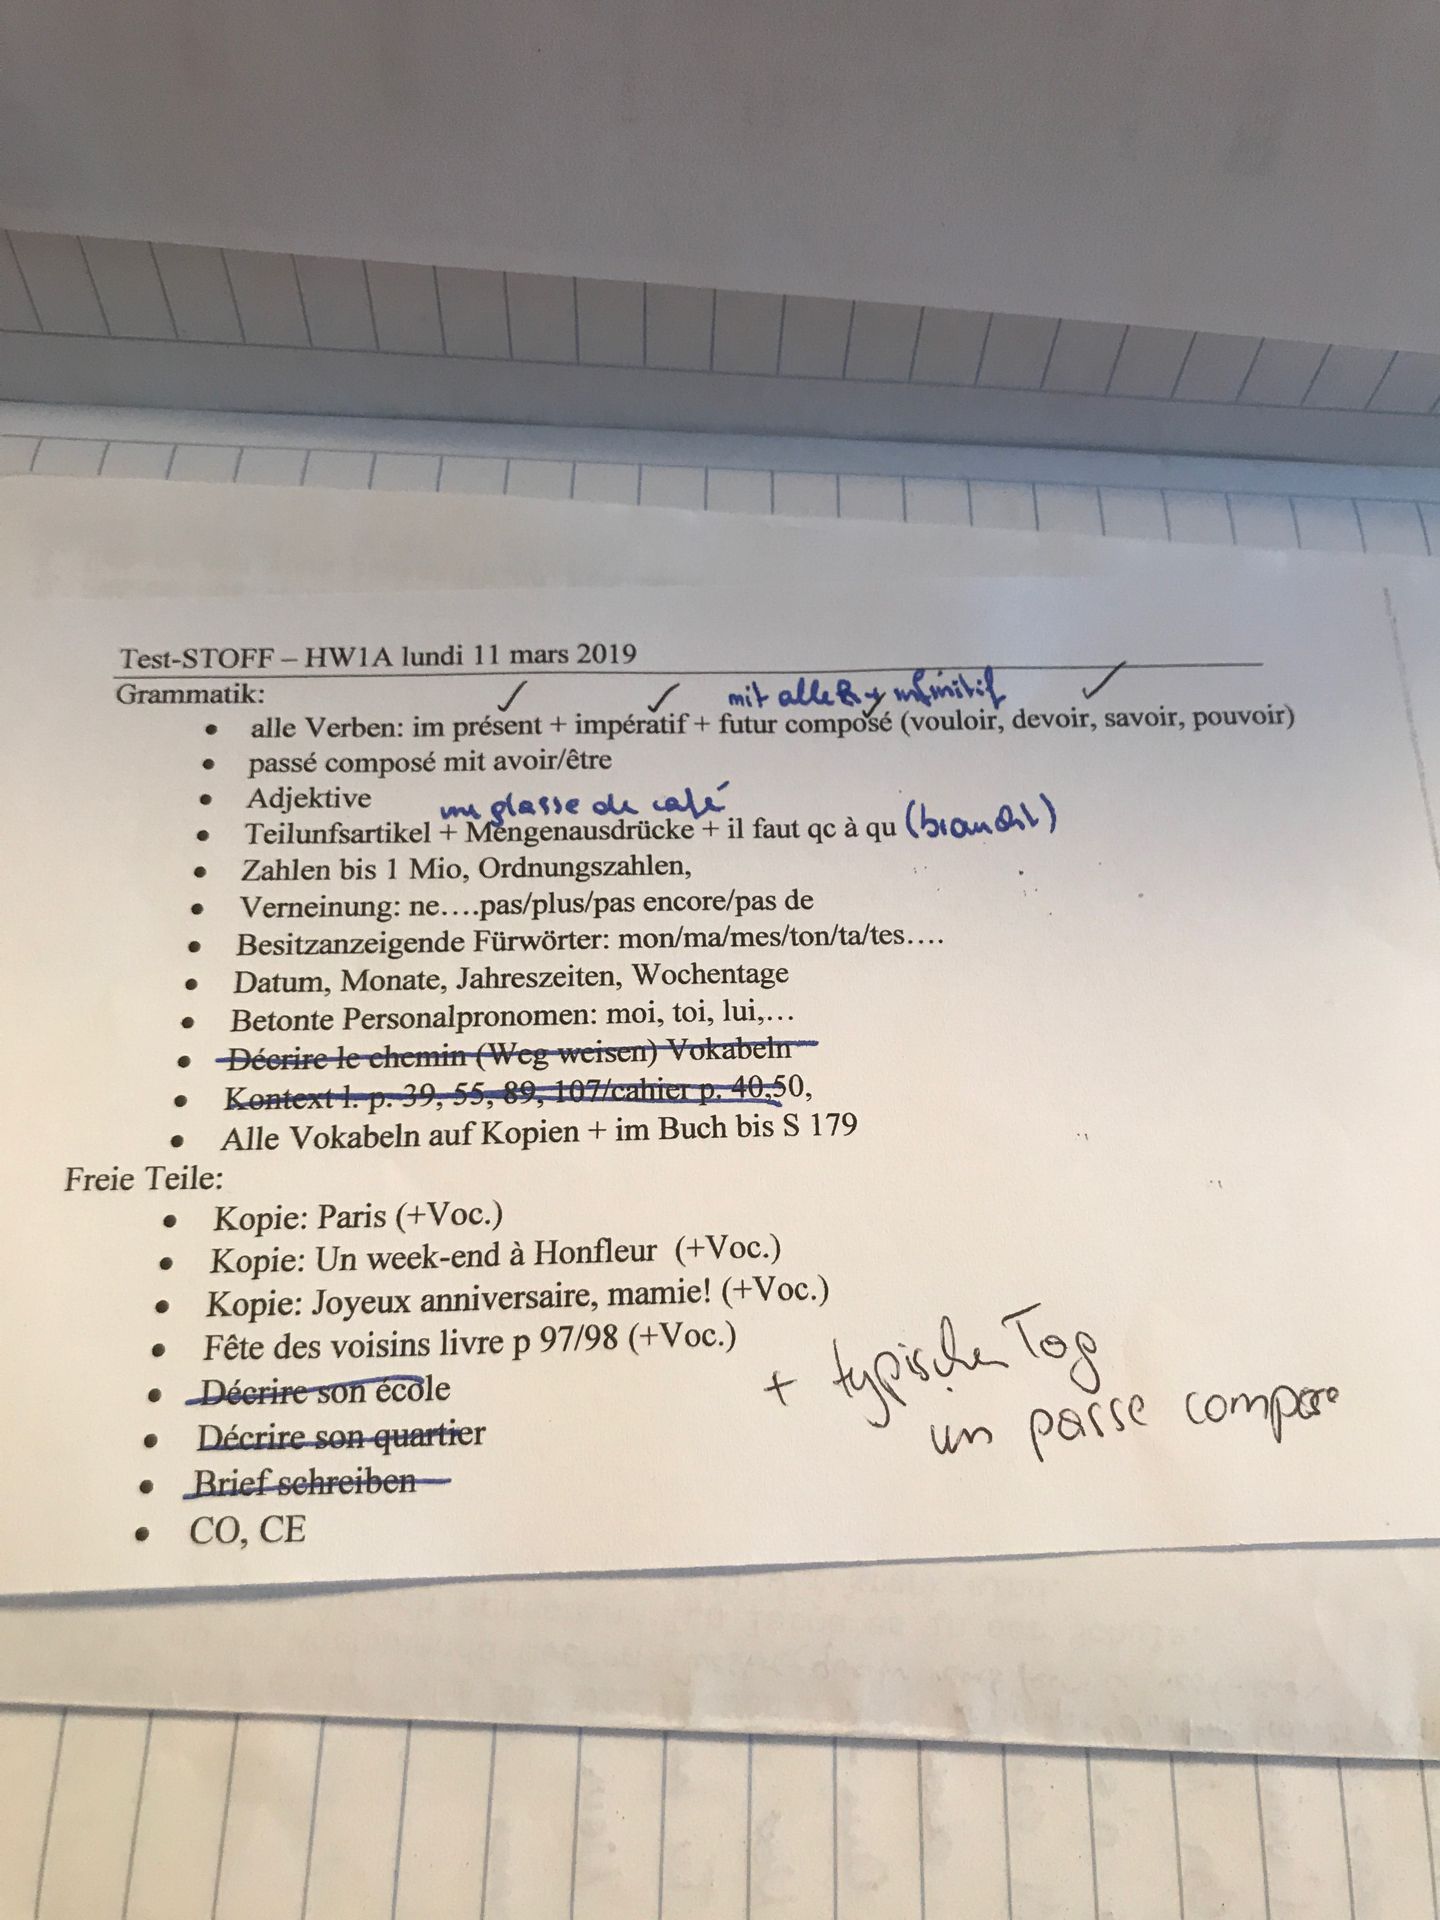 Test-STOFF – HW1A lundi 11 mars 2019
Grammatik:
mit aller + infinitif
• alle Verben: im présent + impératif + futur composé (vouloir, devoir, savoir, pouvoir)
• passé composé mit avoir/être
• Adjektive
une glasse de café
• Teilunfsartikel + Mengenausdrücke + il faut qc à qu (braucht)
• Zahlen bis 1 Mio, Ordnungszahlen,
• Verneinung: ne….pas/plus/pas encore/pas de
• Besitzanzeigende Fürwörter: mon/ma/mes/ton/ta/tes….
• Datum, Monate, Jahreszeiten, Wochentage
• Betonte Personalpronomen: moi, toi, lui,…
• Décrire le chemin (Weg weisen) Vokabeln
• Kontext l. p. 39, 55, 89, 107/cahier p. 40,50,
• Alle Vokabeln auf Kopien + im Buch bis S 179
Freie Teile:
• Kopie: Paris (+Voc.)
• Kopie: Un week-end à Honfleur (+Voc.)
• Kopie: Joyeux anniversaire, mamie! (+Voc.)
• Fête des voisins livre p 97/98 (+Voc.)
+ typischer Tag
• Décrire son école
um passe compose
• Décrire son quartier
• Brief schreiben
• CO, CE